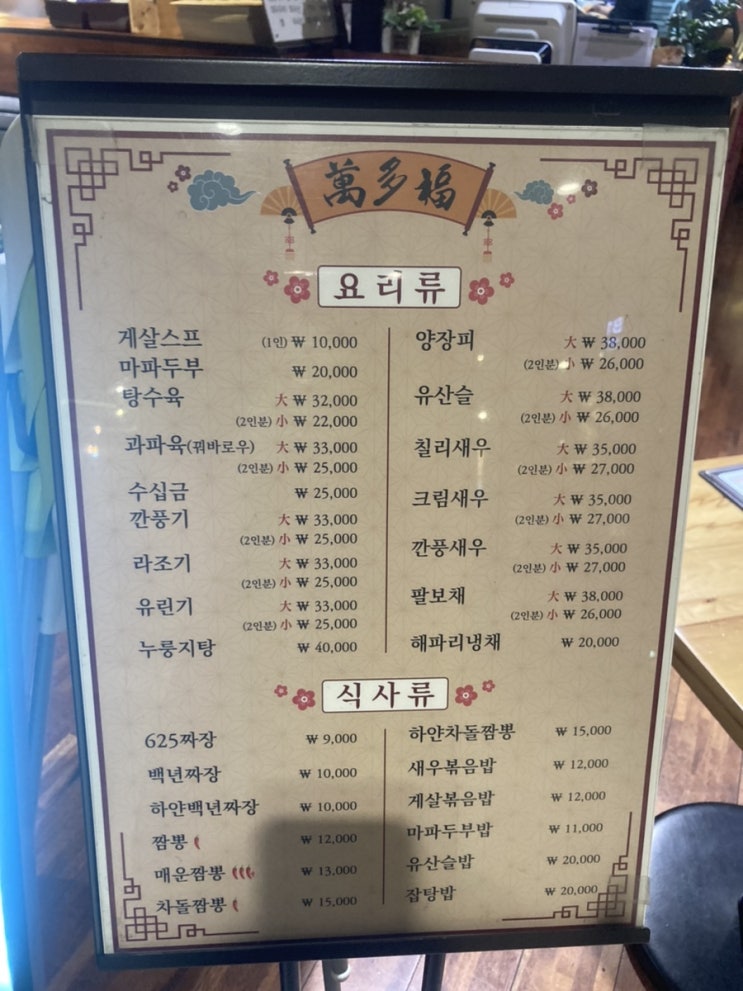 萬多福
요리류
게살스프 (1인) ₩ 10,000
마파두부 ₩ 20,000
탕수육 大 ₩ 32,000
(2인분) 小 ₩ 22,000
과파육(꿔바로우) 大 ₩ 33,000
(2인분) 小 ₩ 25,000
수십금 ₩ 25,000
깐풍기 大 ₩ 33,000
(2인분) 小 ₩ 25,000
라조기 大 ₩ 33,000
(2인분) 小 ₩ 25,000
유린기 大 ₩ 33,000
(2인분) 小 ₩ 25,000
누룽지탕 ₩ 40,000
양장피 大 ₩ 38,000
(2인분) 小 ₩ 26,000
유산슬 大 ₩ 38,000
(2인분) 小 ₩ 26,000
칠리새우 大 ₩ 35,000
(2인분) 小 ₩ 27,000
크림새우 大 ₩ 35,000
(2인분) 小 ₩ 27,000
깐풍새우 大 ₩ 35,000
(2인분) 小 ₩ 27,000
팔보채 大 ₩ 38,000
(2인분) 小 ₩ 26,000
해파리냉채 ₩ 20,000
식사류
625짜장 ₩ 9,000
백년짜장 ₩ 10,000
하얀백년짜장 ₩ 10,000
짬뽕 ₩ 12,000
매운짬뽕 ₩ 13,000
차돌짬뽕 ₩ 15,000
하얀차돌짬뽕 ₩ 15,000
새우볶음밥 ₩ 12,000
게살볶음밥 ₩ 12,000
마파두부밥 ₩ 11,000
유산슬밥 ₩ 20,000
잡탕밥 ₩ 20,000